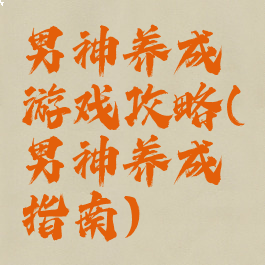 男神养成
游戏攻略(
男神养成
指南)